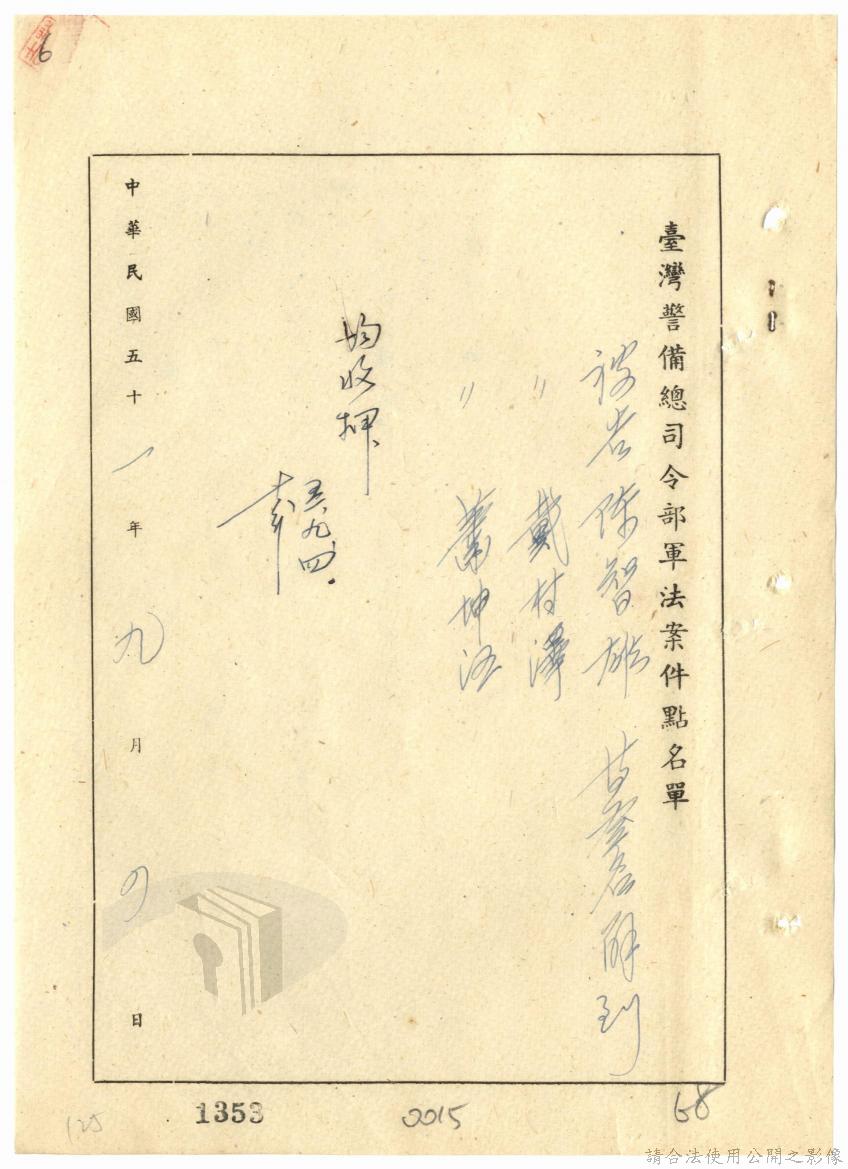 6
臺灣警備總司令部軍法案件點名單
被告 陳智雄
〃 戴村澤
〃 蕭坤旺
解到
均收押
五、九、四.
中華民國五十一年九月四日
125
1353
0015
68
請合法使用公開之影像